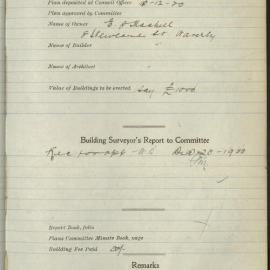 Plan deposited at Council Office 8-12-20
Plan approved by Committee
Name of Owner E. J. Maskell
Cleveland St. Waverly
Name of Builder "
Name of Architect "
Value of Buildings to be erected say £1000
Building Surveyor's Report to Committee
Dec 20-1920
Report Book, folio
Plans Committee Minute Book, page
Building Fee Paid 20/-
Remarks